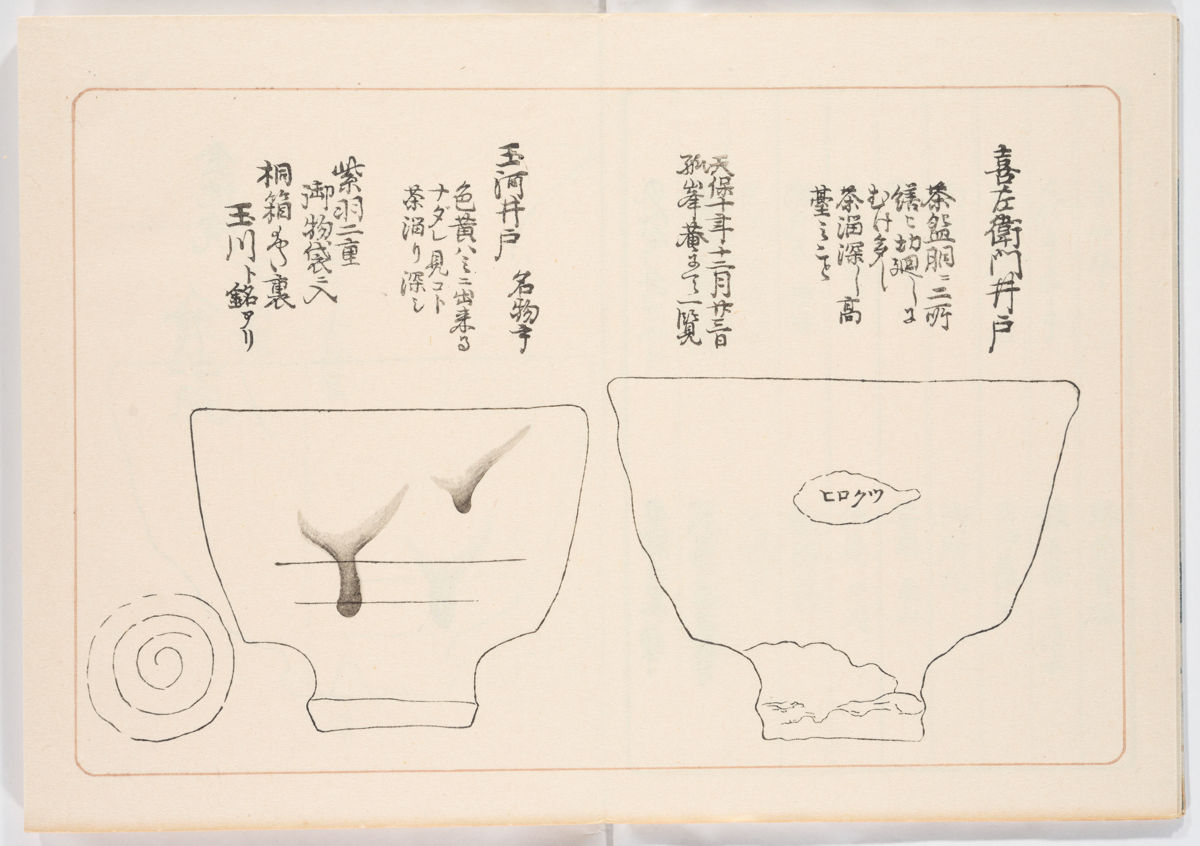 喜左衛門井戸
茶盌胴ニ二所
茶溜深し高
臺ミこと
天保十年十二月廿三日
孤峯菴ニて一覧
ヒロクツ
玉河井戸 名物
色黄ハミニ出来る
ナダレ見コト
茶溜り深シ
紫羽二重
御物袋ニ入
桐箱 裏
玉川ト銘アリ